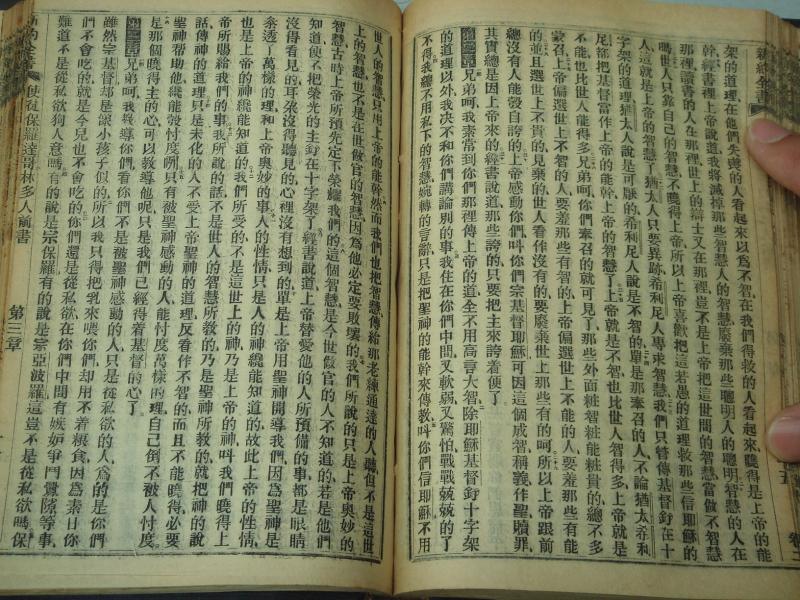 新約全書
卷二
架的道理、在他們失喪的人看起來以爲不智、在我們得救的人看起來、曉得是上帝的能
幹、經書裡上帝說道、我將滅掉那些智慧人的智慧、廢棄那些聰明人的聰明、智慧的人在
那裡、讀書的人在那裡、世上的辯士又在那裡、豈不是上帝把這世間的智慧當做不智慧
嗎、世人只靠自己的智慧、不曉得上帝、所以上帝喜歡把這若愚的道理救那些信耶穌的
人、這就是上帝的智慧了、猶太人只要異跡、希利足人專求智慧、我們只管傳基督釘在十
字架的道理、猶太人說是可厭的、希利足人說是不智的、單是那奉召的人、不論猶太希利
足、都把基督當作上帝的能幹、上帝的智慧了、上帝就是不智、也比世人智得多、上帝就是
不能、也比世人能得多、兄弟呵、你們奉召的就可見了、那些外面粧智粧能粧貴的總不多
蒙召、上帝偏選世上不智的人、要羞那些有智的、上帝偏選世上不能的人、要羞那些有能
的、並且選世上不貴的見棄的世人看作沒有的、要廢棄世上那些有的呵、所以上帝跟前
總沒有人能彀自誇的、上帝感動你們、叫你們宗基督耶穌、可因這個成智稱義作聖贖罪、
其實總是因上帝來的、經書說道、那些誇的、只要把主來誇着便了、
兄弟呵、我素常到你們那裡傳上帝的道、全不用高言大智、除耶穌基督釘十字架
的道理以外、我决不和你們講論別的事、我住在你們中間、又軟弱、又驚怕、戰戰兢兢的了
不得、我總不用私下的智慧婉轉的言辭、只是把聖神的能幹來傳教、叫你們信耶穌、不用
世人的智慧、只用上帝的能幹、然而我們也把智慧、傳給那老練通達的人聽、但不是這世
上的智慧、也不是在世做官的智慧、因爲他必定要敗壞的、我們所說的只是上帝奧妙的
智慧、古時上帝所預先定下榮耀我們的、這個智慧、是今世做官的人不知道的、若是他們
知道、便不把榮光的主釘在十字架了、經書說道、上帝替愛他的人所預備的事、都是眼睛
沒得看見的、耳朶沒得聽見的、心裡沒有想到的、單是上帝用聖神開導我們、因爲聖神是
叅透了萬樣的理、和上帝奧妙的事、人的性情、只是人的神纔能知道的、故此上帝的性情、
也是上帝的神纔能知道的、我們所受的、不是這世上的神、乃是上帝的神、叫我們曉得上
帝所賜給我們的事、我所說的話、不是世人的智慧所教的、乃是聖神所教的、就把神的說
話、傳神的道理、只是未化的人、不受上帝聖神的道理、反看作不智的、而且不能曉得、必要
聖神帮助他、纔能彀忖度咧、只有被聖神感動的人、能忖度萬樣的理、自己倒不被人忖度、
是那個曉得主的心、可以教導他呢、只是我們已經得着基督的心了、
兄弟呵、我教導你們、看你們不是被聖神感動的人、只是從私欲的人、爲的是你們
雖然宗基督、却是像小孩子似的、所以我只得把乳來喂你們、却用不着粮食、因爲素日你
們不會吃的、就是今兒也不會吃的、你們還是從私欲、在你們中間有嫉妒爭鬥釁隙等事、
難道不是從私欲狥人意嗎、有的說是宗保羅、有的說是宗亞波羅、這豈不是從私欲嗎、保
新約全書
使徒保羅達哥林多人前書
第三章